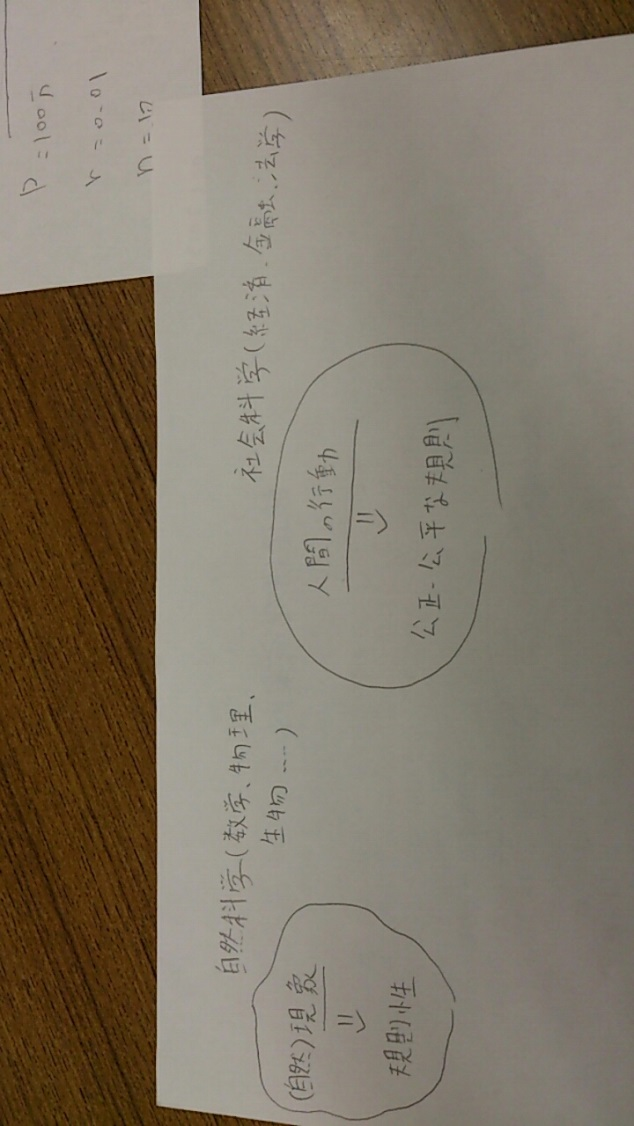 P = 100万
r = 0.01
自然科学(数学、物理、
生物……)
(自然)現象
⇓
規則性
社会科学(経済、金融、法学)
人間の行動
⇓
公正・公平な規則